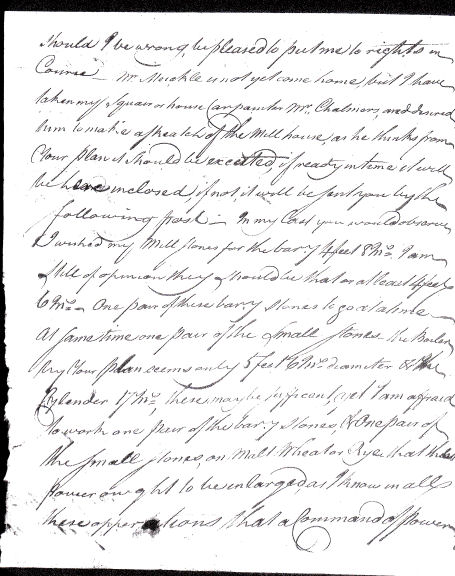 should I be wrong, be pleased to put me to rights in
Course – Mr. Muckle is not yet come home, but I have
taken my Squair or house Carpainter Mr. Chalmers, and desired
him to make a sketch of the Mill house, as he thinks from
Your plan it should be excuted, if ready in time it will
be here inclosed, if not, it will be sent you by the
following post – In my last you would observe
I wished my Mill stones for the barry 4 feet 8 Ins. I am
still of opinion they should be that or at least 4 feet
6 Ins. – One pair of these barry stones to go at a time
At same time one pair of the small stones. the Boiler
by Your plan seems only 5 feet 6 Ins diameter & the
Cylender 17 Ins these may be sufficent, yet I am affraid
to work one pair of the barry stones, & One pair of
the small stones, on Malt Wheat or Rye, that the
power ought to be enlarged as I know in all
these opperations that a Command of power